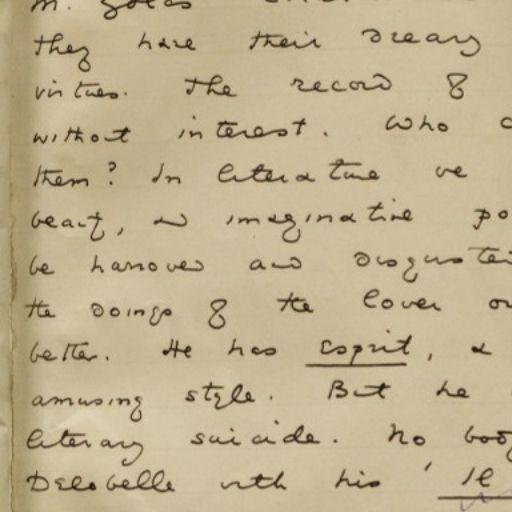 M. Zola's
they have their dreary
virtues. The record of
without interest. Who
them? In literature we
beauty, and imaginative po
be harrowed and disgusted
the doings of the lower or
better. He has esprit, a
amusing style. But he
literary suicide. No body
Delobelle with his 'Il